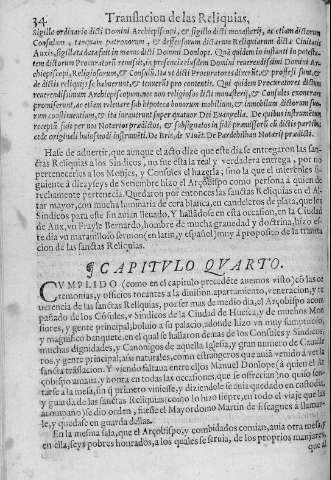 34 Translacion de las Reliquias,
Sigillo ordinario dicti Domini Archiepiscopi, & sigillo dicti monasterij, ac etiam dictorum
Consulum, tanquam patronorum, & defensorum dictarum Reliquiarum dictæ Ciuitatis
Auxis, sigillata data fuit in manu dicti Domini Donlope. Quæ quidem in instanti in potesta-
tem dictorum Procuratorũ remisit, in presentia eiusdem Domini reuerendissimi Domini Ar-
chiepiscopi, Religiosorum, & Consulũ. Ita vt dicti Procuratores dixerũt, & professi sunt, &
de dictis reliquijs se habuerunt, & tenuerũt pro contentis. Qui quidem dominus
reuerendissimus Archiepiscopus, nec non religiosi dicti monasterij, & Consules
promiserunt, ac etiam tenere sub hipoteca bonorum mobilium, & inmobilium dictorum suo-
rum constituentium, & ita iurauerunt super quatuor Dei Euangelia. De quibus instrumentum
receptũ fuit per nos Notarios prædictos, & subsignatos in fide
cede originali huiusmodi instrumenti. De Brit. de Vaux. De Notarij prædicti.
Hase de aduertir, que aunque el acto dize que este dia se entregaron las sanc-
tas Reliquias a los Sindicos, no fue esta la real y verdadera entrega, por no
pertenecerles a los Monjes, y Consules el hazerla; sino la que el miercoles si-
guiente à diez y seys de Setiembre hizo el Arçobispo como persona à quien de-
rechamente pertenecia. Quedaron por entonces las sanctas Reliquias en el Al-
tar mayor, con mucha luminaria de cera blanca, en candeleros de plata, que los
Sindicos para esse fin auian lleuado. Y hallãdose en esta occasion, en la Ciudad
de Aux, vn Frayle Bernardo, hombre de mucha grauedad y doctrina, hizo es-
te dia vn marauilloso sermon en latin, y español, muy á proposito de la transla-
cion de las sanctas Reliquias.
¶ CAPITVLO QVARTO.
CVMPLIDO (como en el capitulo precedẽte auemos visto) cõ las ce-
remonias, y officios tocantes a la diuision, apartamiento, veneracion, y re-
uerencia de las sanctas Reliquias, por ser mas de medio dia, el Arçobispo acom-
pañado de los Cõsules, y Sindicos de la Ciudad de Huesca, y de muchos Mon-
siores, y gente principal, boluio a su palacio, adonde hizo vn muy sumptuoso,
y magnifico banquete, en el qual se hallaron de mas de los Consules y Sindicos,
muchas dignidades, y Canonigos de aquella Iglesia, y gran numero de Caualle-
ros, y gente principal, assi naturales, como estrangeros que auiã venido á ver la
sancta traslacion. Y viendo faltaua entre ellos Manuel Donlope (á quien el Ar-
çobispo amaua, y honra en todas las occasiones, que se offrecian) no quiso sen-
tarse a la mesa, sin q̃ primero viniesse, y diziendole se auia quedado en custodia
y guarda de las sanctas Reliquias (como lo hizo siẽpre, en todo el viaje que las
acompañó) se dio orden, fuesse el Mayordomo Martin de Sescagues á llamar-
le, y quedasse en guarda dellas.
En la mesma sala, que el Arçobispo, y combidados comian, auia otra mesa, y
en ella, seys pobres honrados, a los quales se seruia, de los proprios manjares,
que al